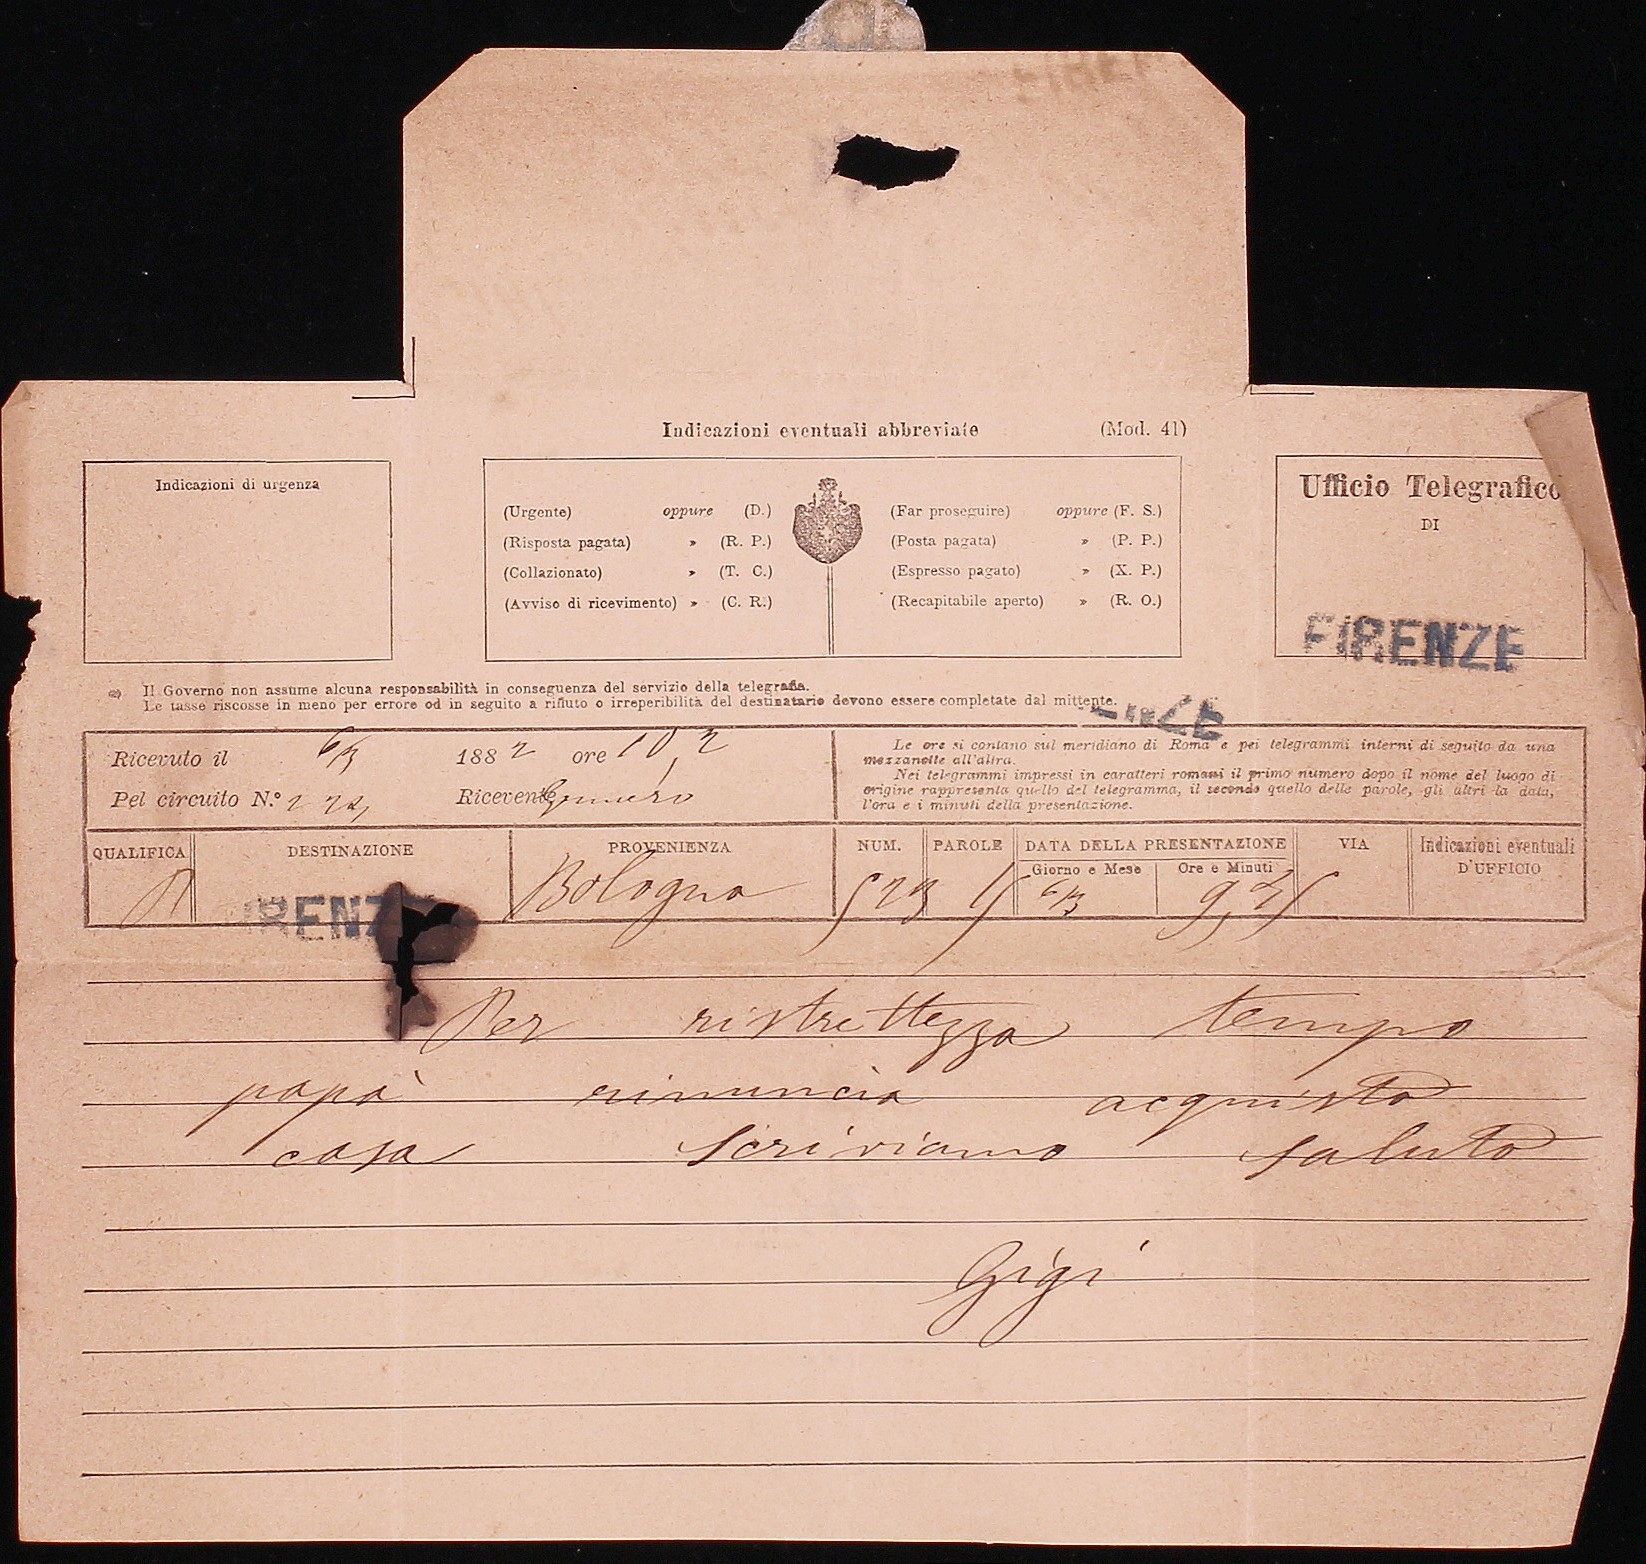 Indicazioni eventuali abbreviate (Mod. 41)
Indicazioni di urgenza
(Urgente) oppure (D.)
(Risposta pagata) » (R. P.)
(Collazionato) » (T. C.)
(Avviso di ricevimento) » (C. R.)
(Far proseguire) oppure (F. S.)
(Posta pagata) » (P. P.)
(Espresso pagato) » (X. P.)
(Recapitabile aperto) » (R. O.)
Ufficio Telegrafico
DI
FIRENZE
Il Governo non assume alcuna responsabilità in conseguenza del servizio della telegrafia.
Le tasse riscosse in meno per errore od in seguito a rifiuto o irreperibilità del destinatario devono essere completate dal mittente.
Ricevuto il 6/3 1882 ore 10 2
Pel circuito N.º Ricevente
Le ore si contano sul meridiano di Roma e pei telegrammi interni di seguito da una
mezzanotte all'altra.
Nei telegrammi impressi in caratteri romani il primo numero dopo il nome del luogo di
origine rappresenta quello del telegramma, il secondo quello delle parole, gli altri la data,
l'ora e i minuti della presentazione.
QUALIFICA DESTINAZIONE PROVENIENZA NUM. PAROLE DATA DELLA PRESENTAZIONE VIA Indicazioni eventuali
Giorno e Mese Ore e Minuti D'UFFICIO
RENZ Bologna 523 15 6/3
Per ristrettezza tempo
papà rinuncia acquisto
casa scriviamo saluto
Gigi